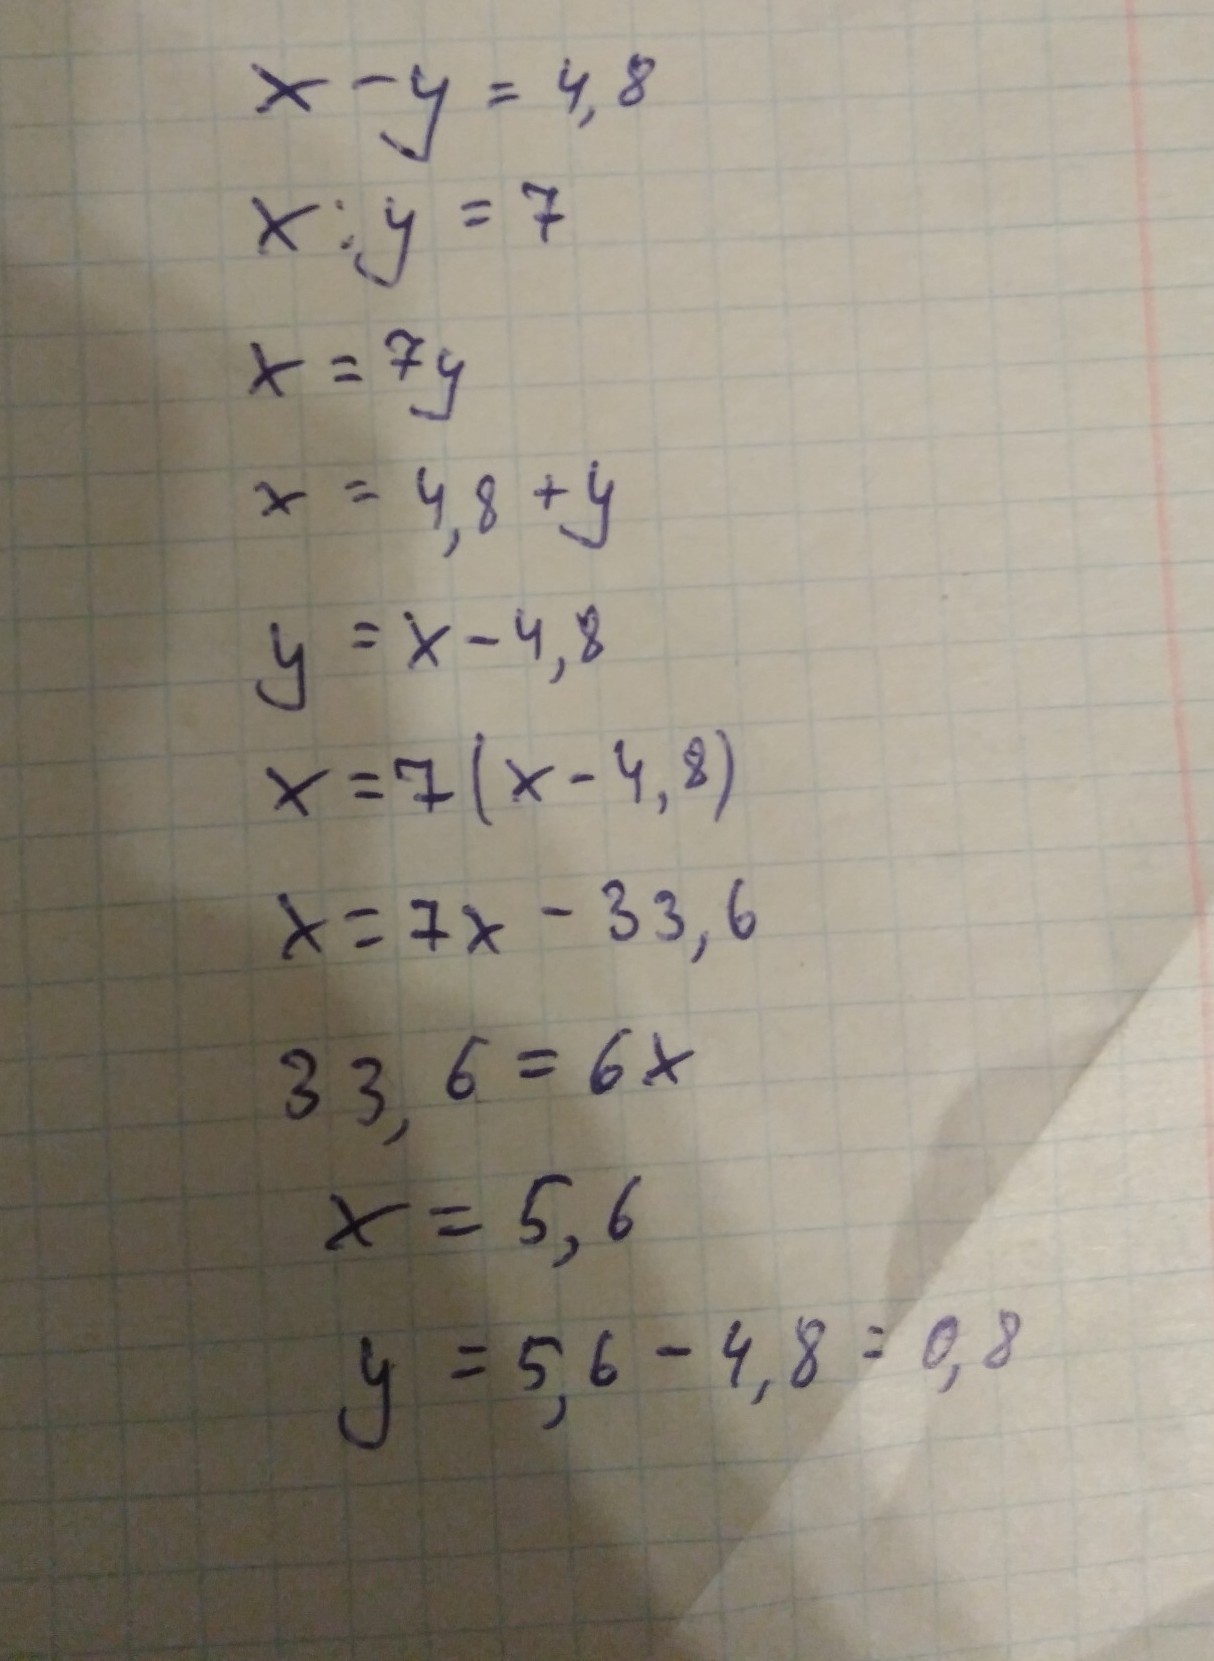 x - y = 4,8
x : y = 7
x = 7y
x = 4,8 + y
y = x - 4,8
x = 7(x - 4,8)
x = 7x - 33,6
33,6 = 6x
x = 5,6
y = 5,6 - 4,8 = 0,8